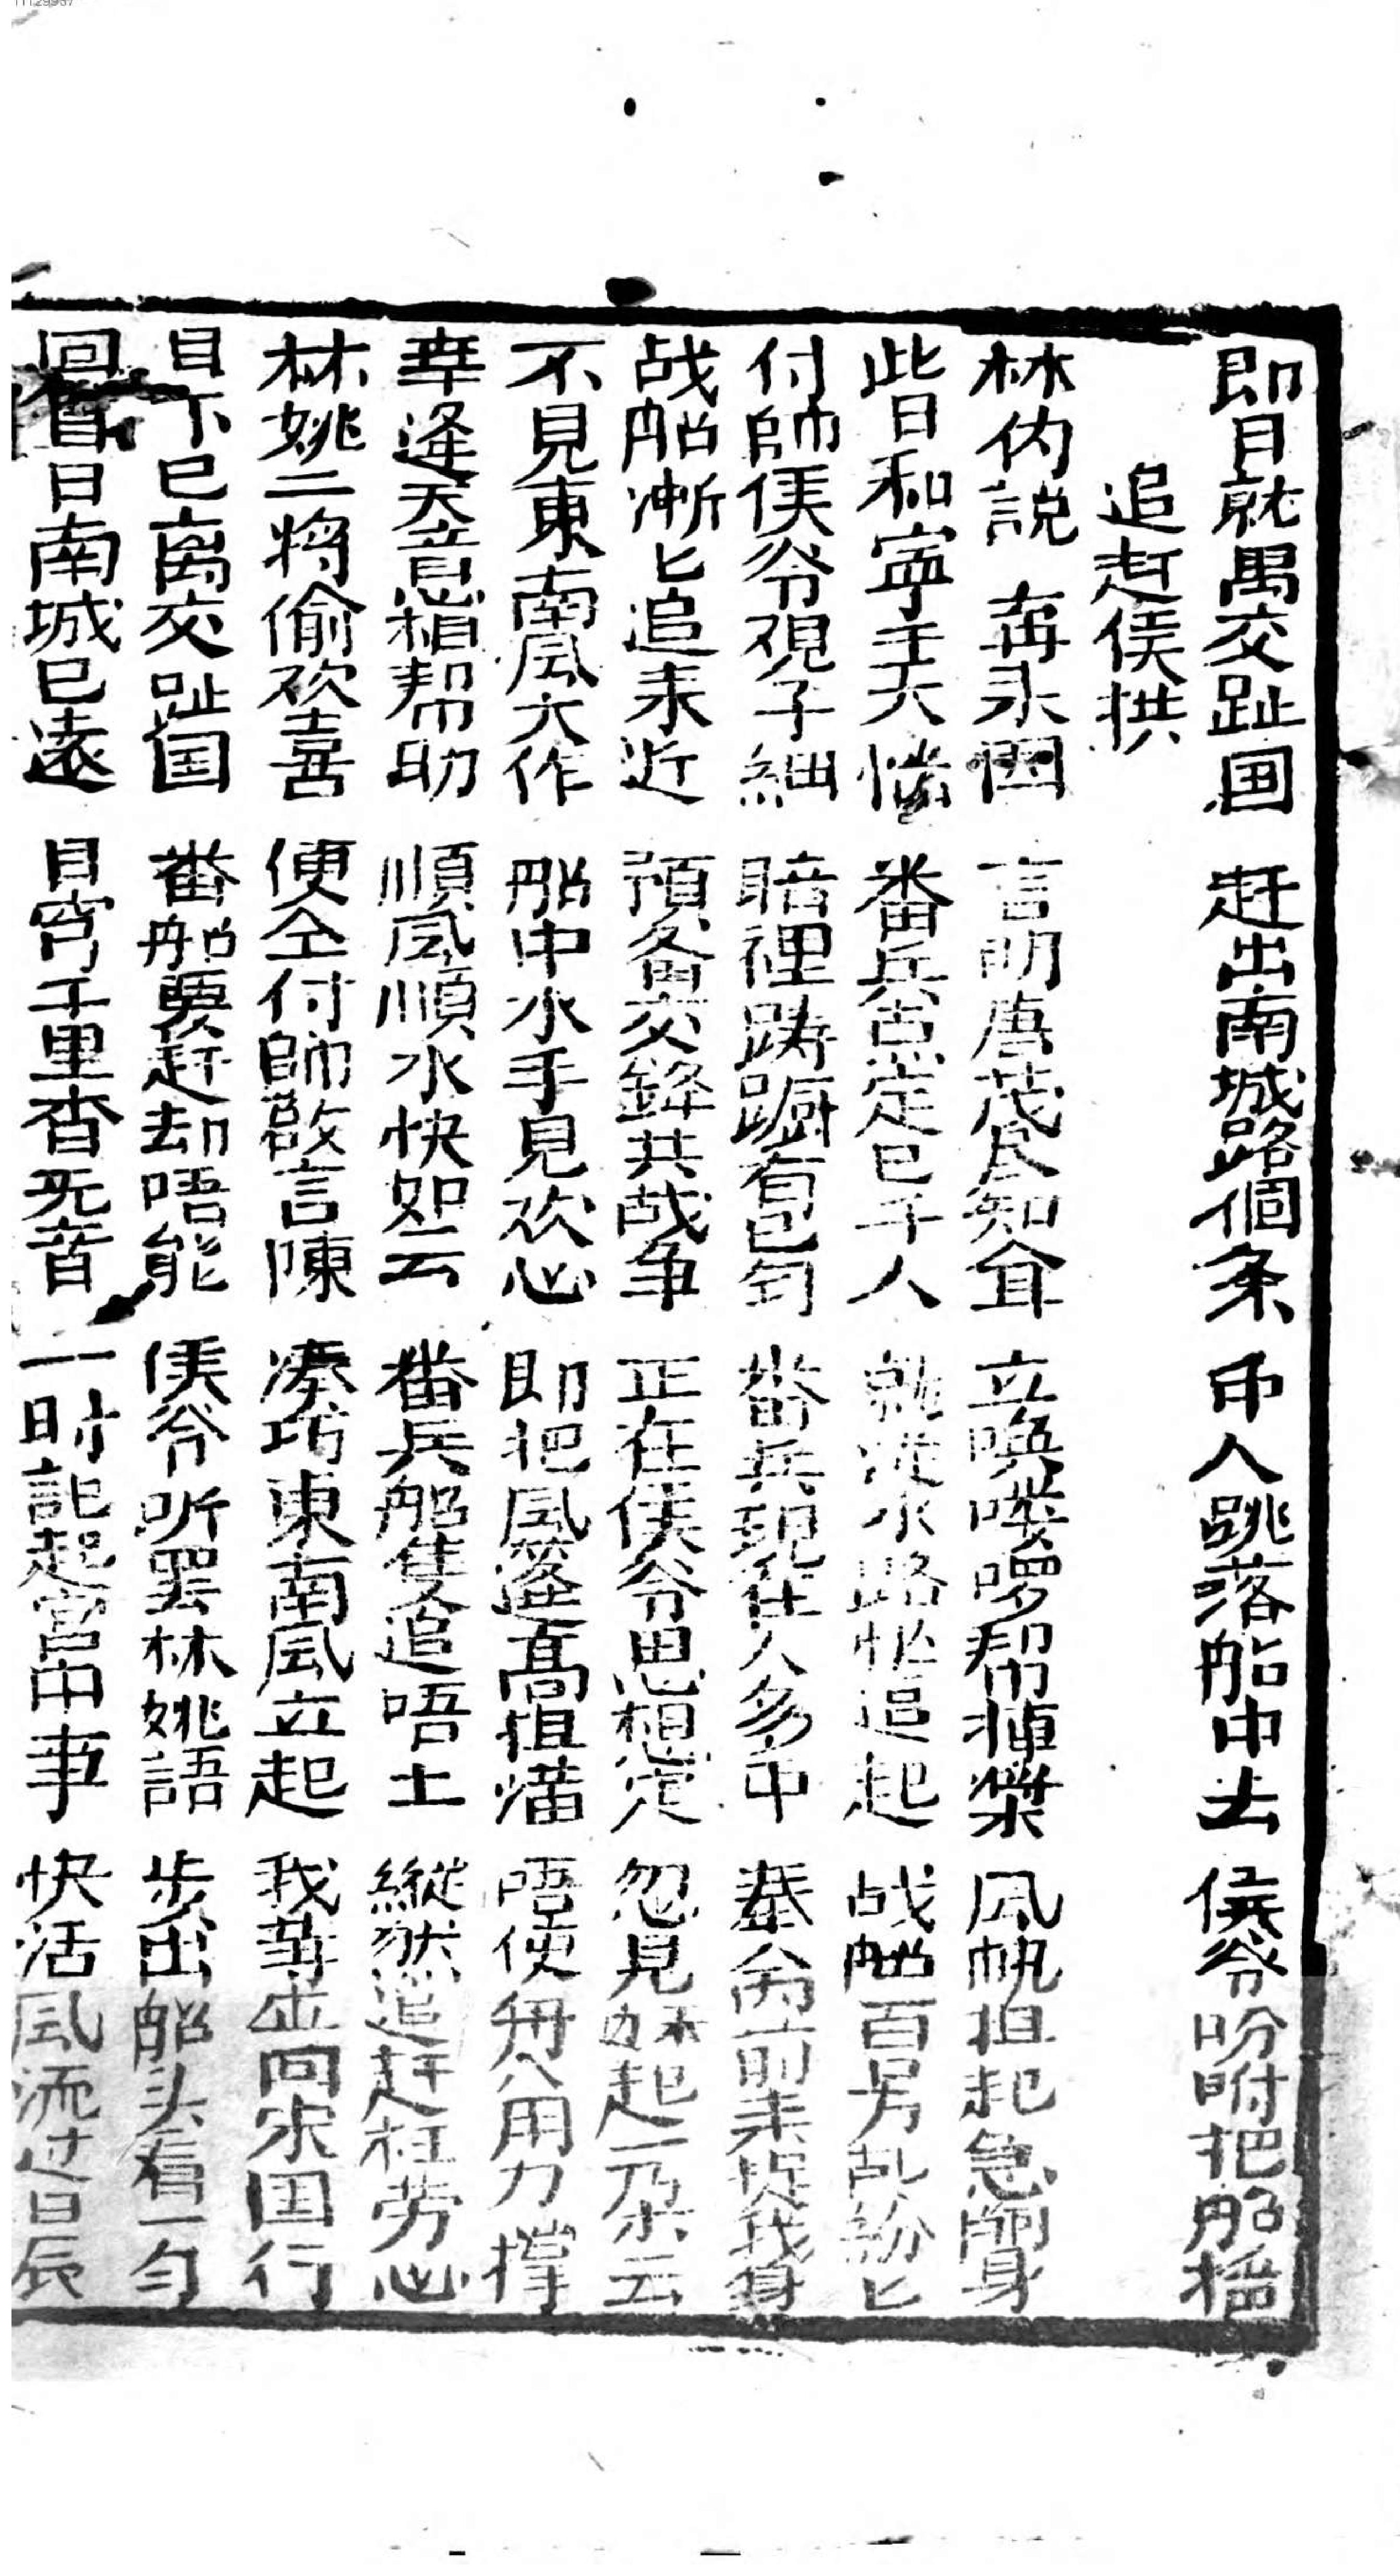 即日就禺交趾国 赶出南城路個条 卬人跳落船中去 侯爷吩咐把船撑
追赶侯拱
林内説 再永因 言明唐茂尽知耸 立喚嘍啰帮掉槳 風帆担起急𫝹身
此日和寧王大惱 番兵吉定已千人 就從水路忙追起 战船百号乱紛匕
付帥侯爷覌子細 暗裡踌蹰有已匀 番兵現在人多中 奉命前来捉我身
战船漸匕追来近 預备交鋒共战争 正在侯爷思想定 忽見妚起一朶云
不見東南風大作 船中水手見欢心 即把風篷高担満 唔使毋八用力撑
幸逢天意相帮助 順風順水快如云 番兵船隻追唔士 縱然追赶枉劳心
林姚二将偷欢喜 便仝付帥啟言陳 凑巧東南風立起 我等坐向宋国行
目下已离交趾国 番船要赶却唔能 侯爷听罢林姚語 步出船头看一匀
回首日南城已遠 目穷千里杳旡音 一时記起宫中事 快活風流过日辰